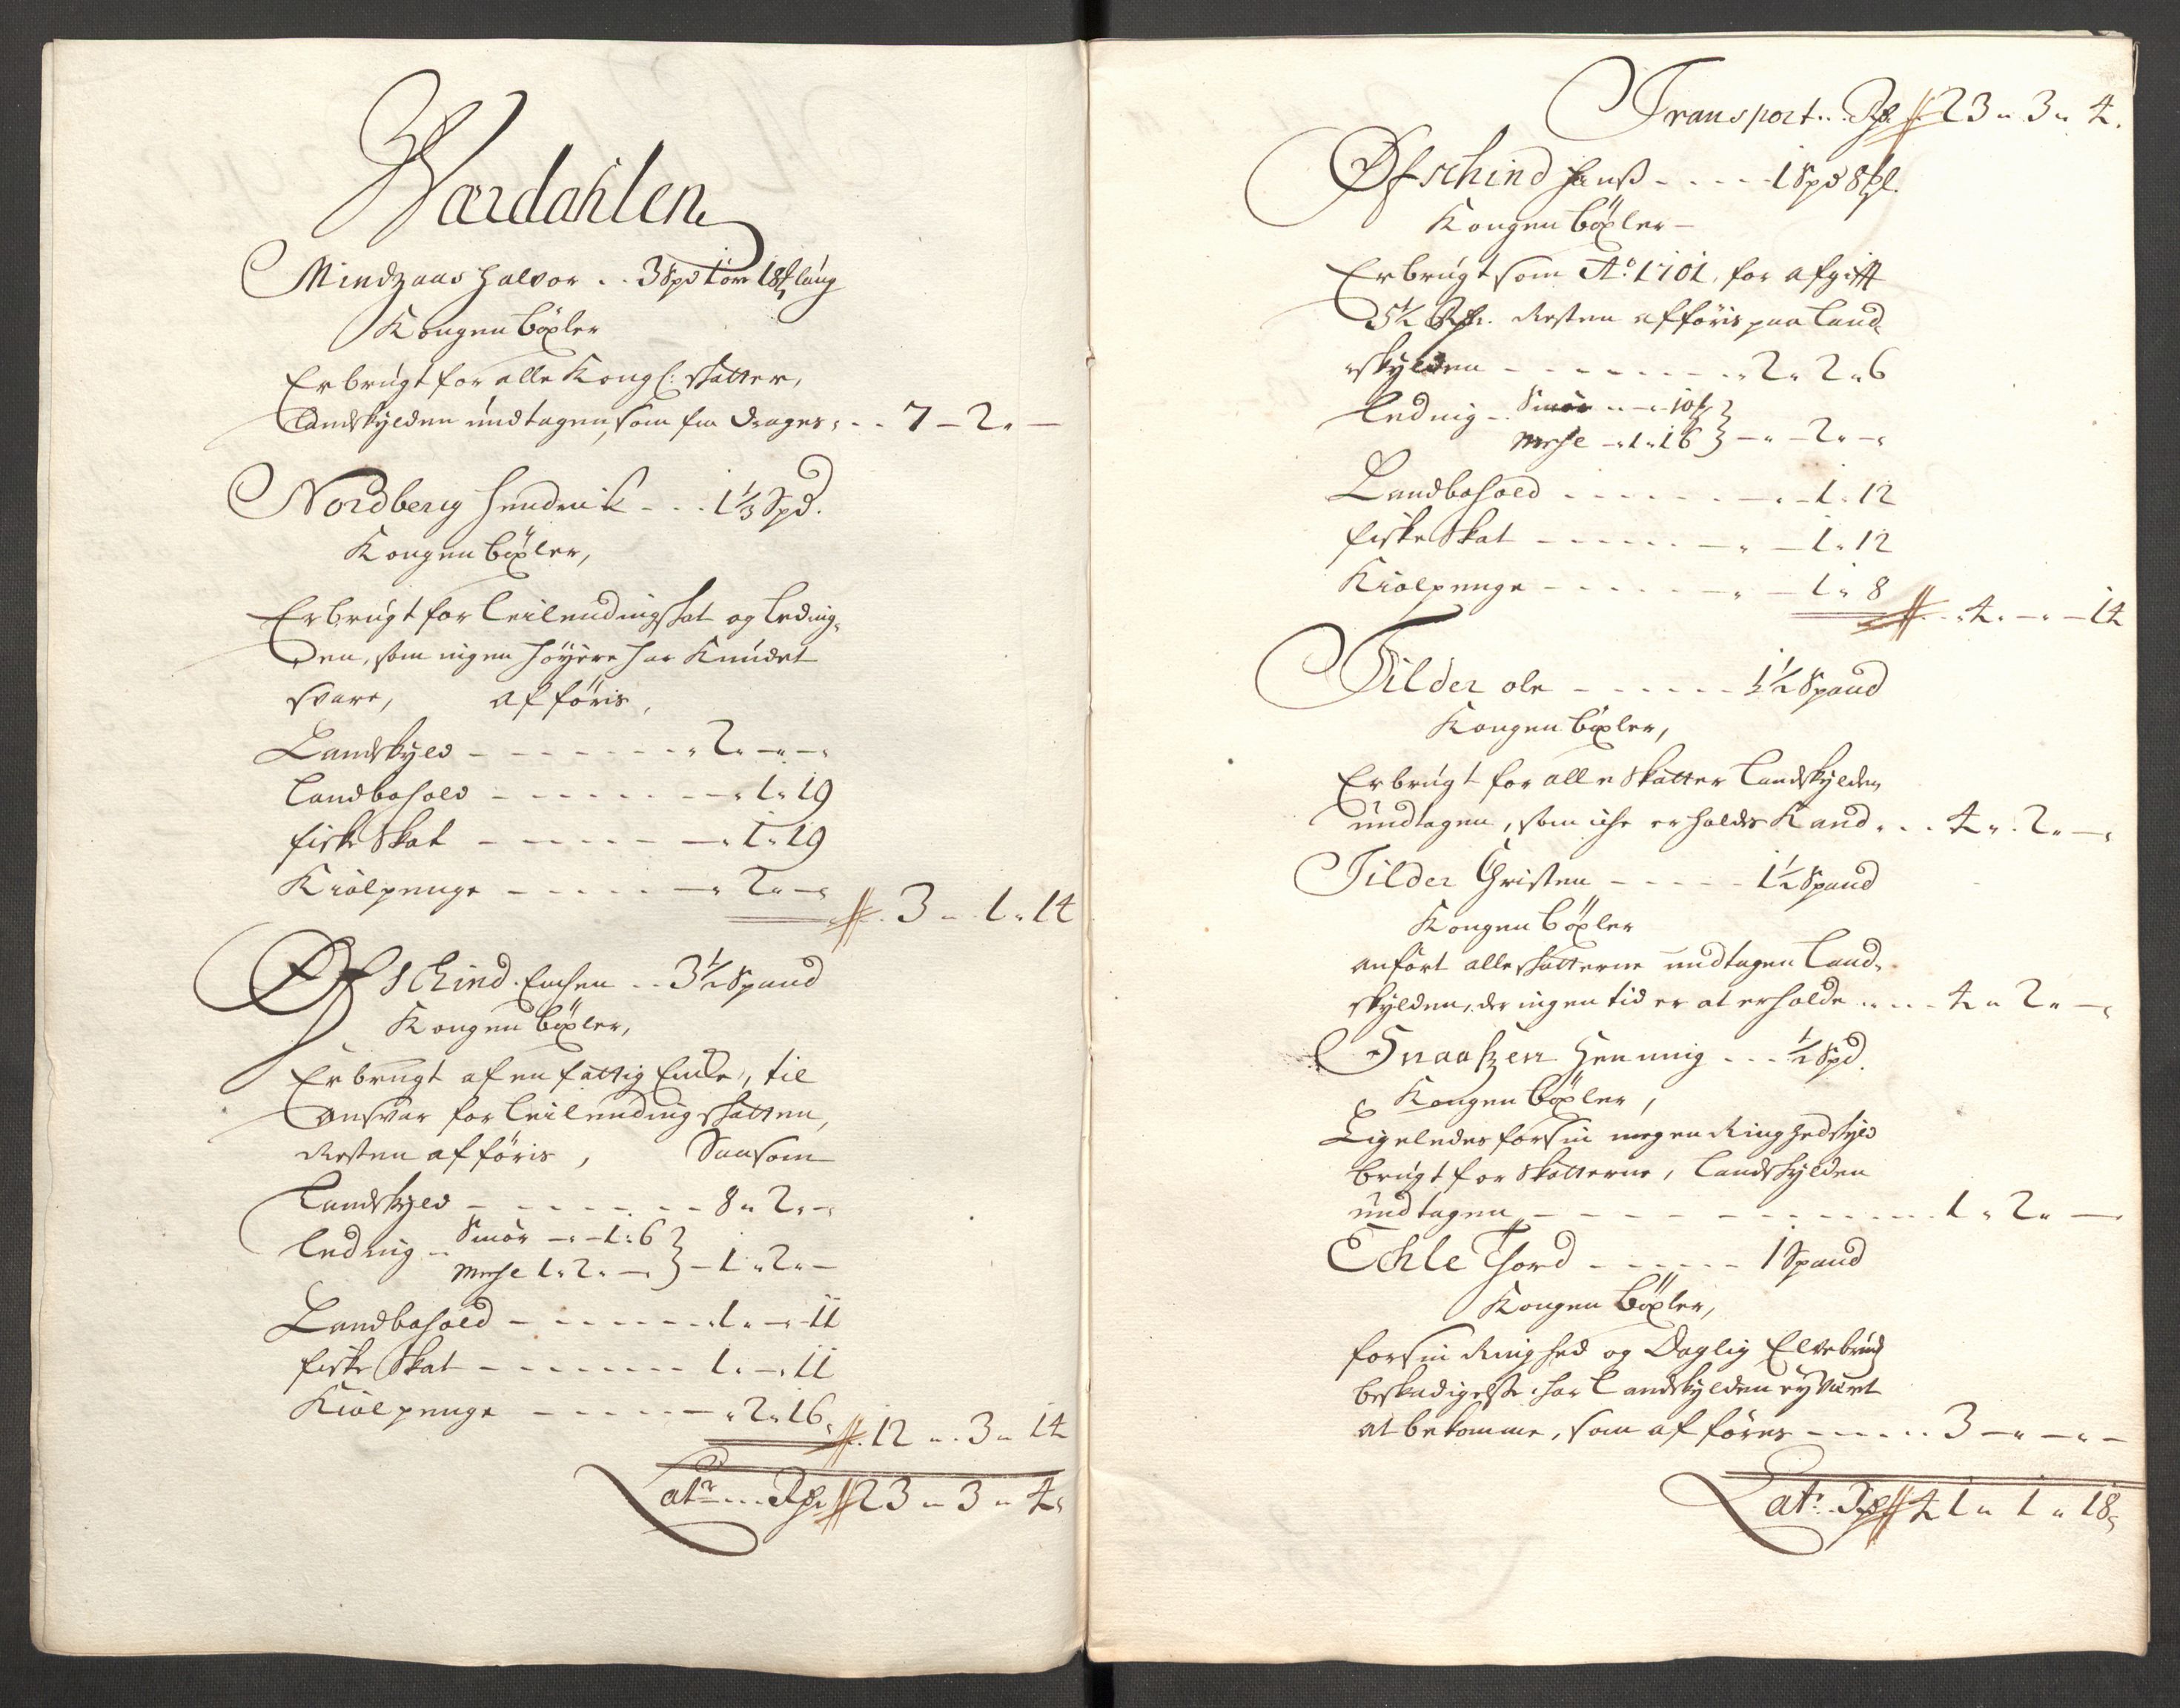 Værdahlen
Mindzaas Halvor .. 3 Spd 1 ør 18 laug
Kongen böxler
Er brugt for alle Kongl: skatter,
Landskylden undtagen, som fra drages, .. 7 – 2 „ –
Nordberg Hendrik - . . 1 1/3 Spd.
Kongen böxler,
Er brugt for leilendingskat og leding,
den, som ingen høyere har kundet
svare, afföris,
Landskyld - - - - - - - „ 2 „ – „ –
Landbohold - - - - - – „ 1 „ 19
fiske Skat - - - - - – „ 1 „ 19
Kiölpenge - - - - - – „ 2 „ –
3 „ 1 „ 14
Øfschind Enchen .. 3 1/2 Spand
Kongen böxler,
Er brugt af en fattig Encke, til
Ansvar for leilendingskatten,
Resten afföris, Saasom
Landskyld - - - - - - 8 „ 2 „ –
leding .. Smör – „ – 1 „ 6
Mehle 1 „ 2 „ – } – 1 „ 2 „ –
Landbohold - - - - - - 1 „ – „ 11
fiske Skat - - - - - - - 1 „ – „ 11
Kiölpenge - - - - - – „ 2 „ 16
12 „ 3 „ 14
Latr ... Rdr 23 „ 3 „ 4
Transport .. Rdr 23 „ 3 „ 4.
Øfschind Hanß - . . . - 1 Spd 8 Mkl.
Kongen böxler –
Er brugt som Ao. 1701, for afgifft
5 1/2 Rdr. Resten afföris paa Land
skylden - - - - - - - . „ 2 „ 2 „ 6
leding .. Smör .. – „ 10
Mehle – „ 1 „ 16 } – „ – 2 „ –
Landbohold . . . . . . – „ – 1 „ 12
fiske Skat - - - - - – „ – 1 „ 12
Kiölpenge - - - - - – „ – 1 „ 8
4 „ – „ – 14
Tilder ole - - - - - - 1 1/2 Spand
Kongen böxler,
Er brugt for alle Skatter Landskylden
undtagen, som iche erholdes Kand, .. 4 „ 2 „ –
Tilder Christen - - - - - 1 1/2 Spand
Kongen böxler
anfört alle skatterne undtagen Land,
skylden, der ingen tid er at erholde .. .. 4 „ 2 „ –
Snaaßen Henning ... 1/2 Spd.
Kongen böxler,
Ligeledes for sin megen Ringhed skyld
brugt for skatterne, Landskylden
undtagen - - - - - - - - - - . 1 „ 2 „ –
Echle Thord - - - - - - 1 Spand
Kongen böxler,
for sin Ringhed og Daglig Elvebrud
beskadigelse, har Landskylden ey været
at bekomme, som afföres - - - - .. 3 – „ – „ –
Latr. Rdr 41 „ 1 „ 18